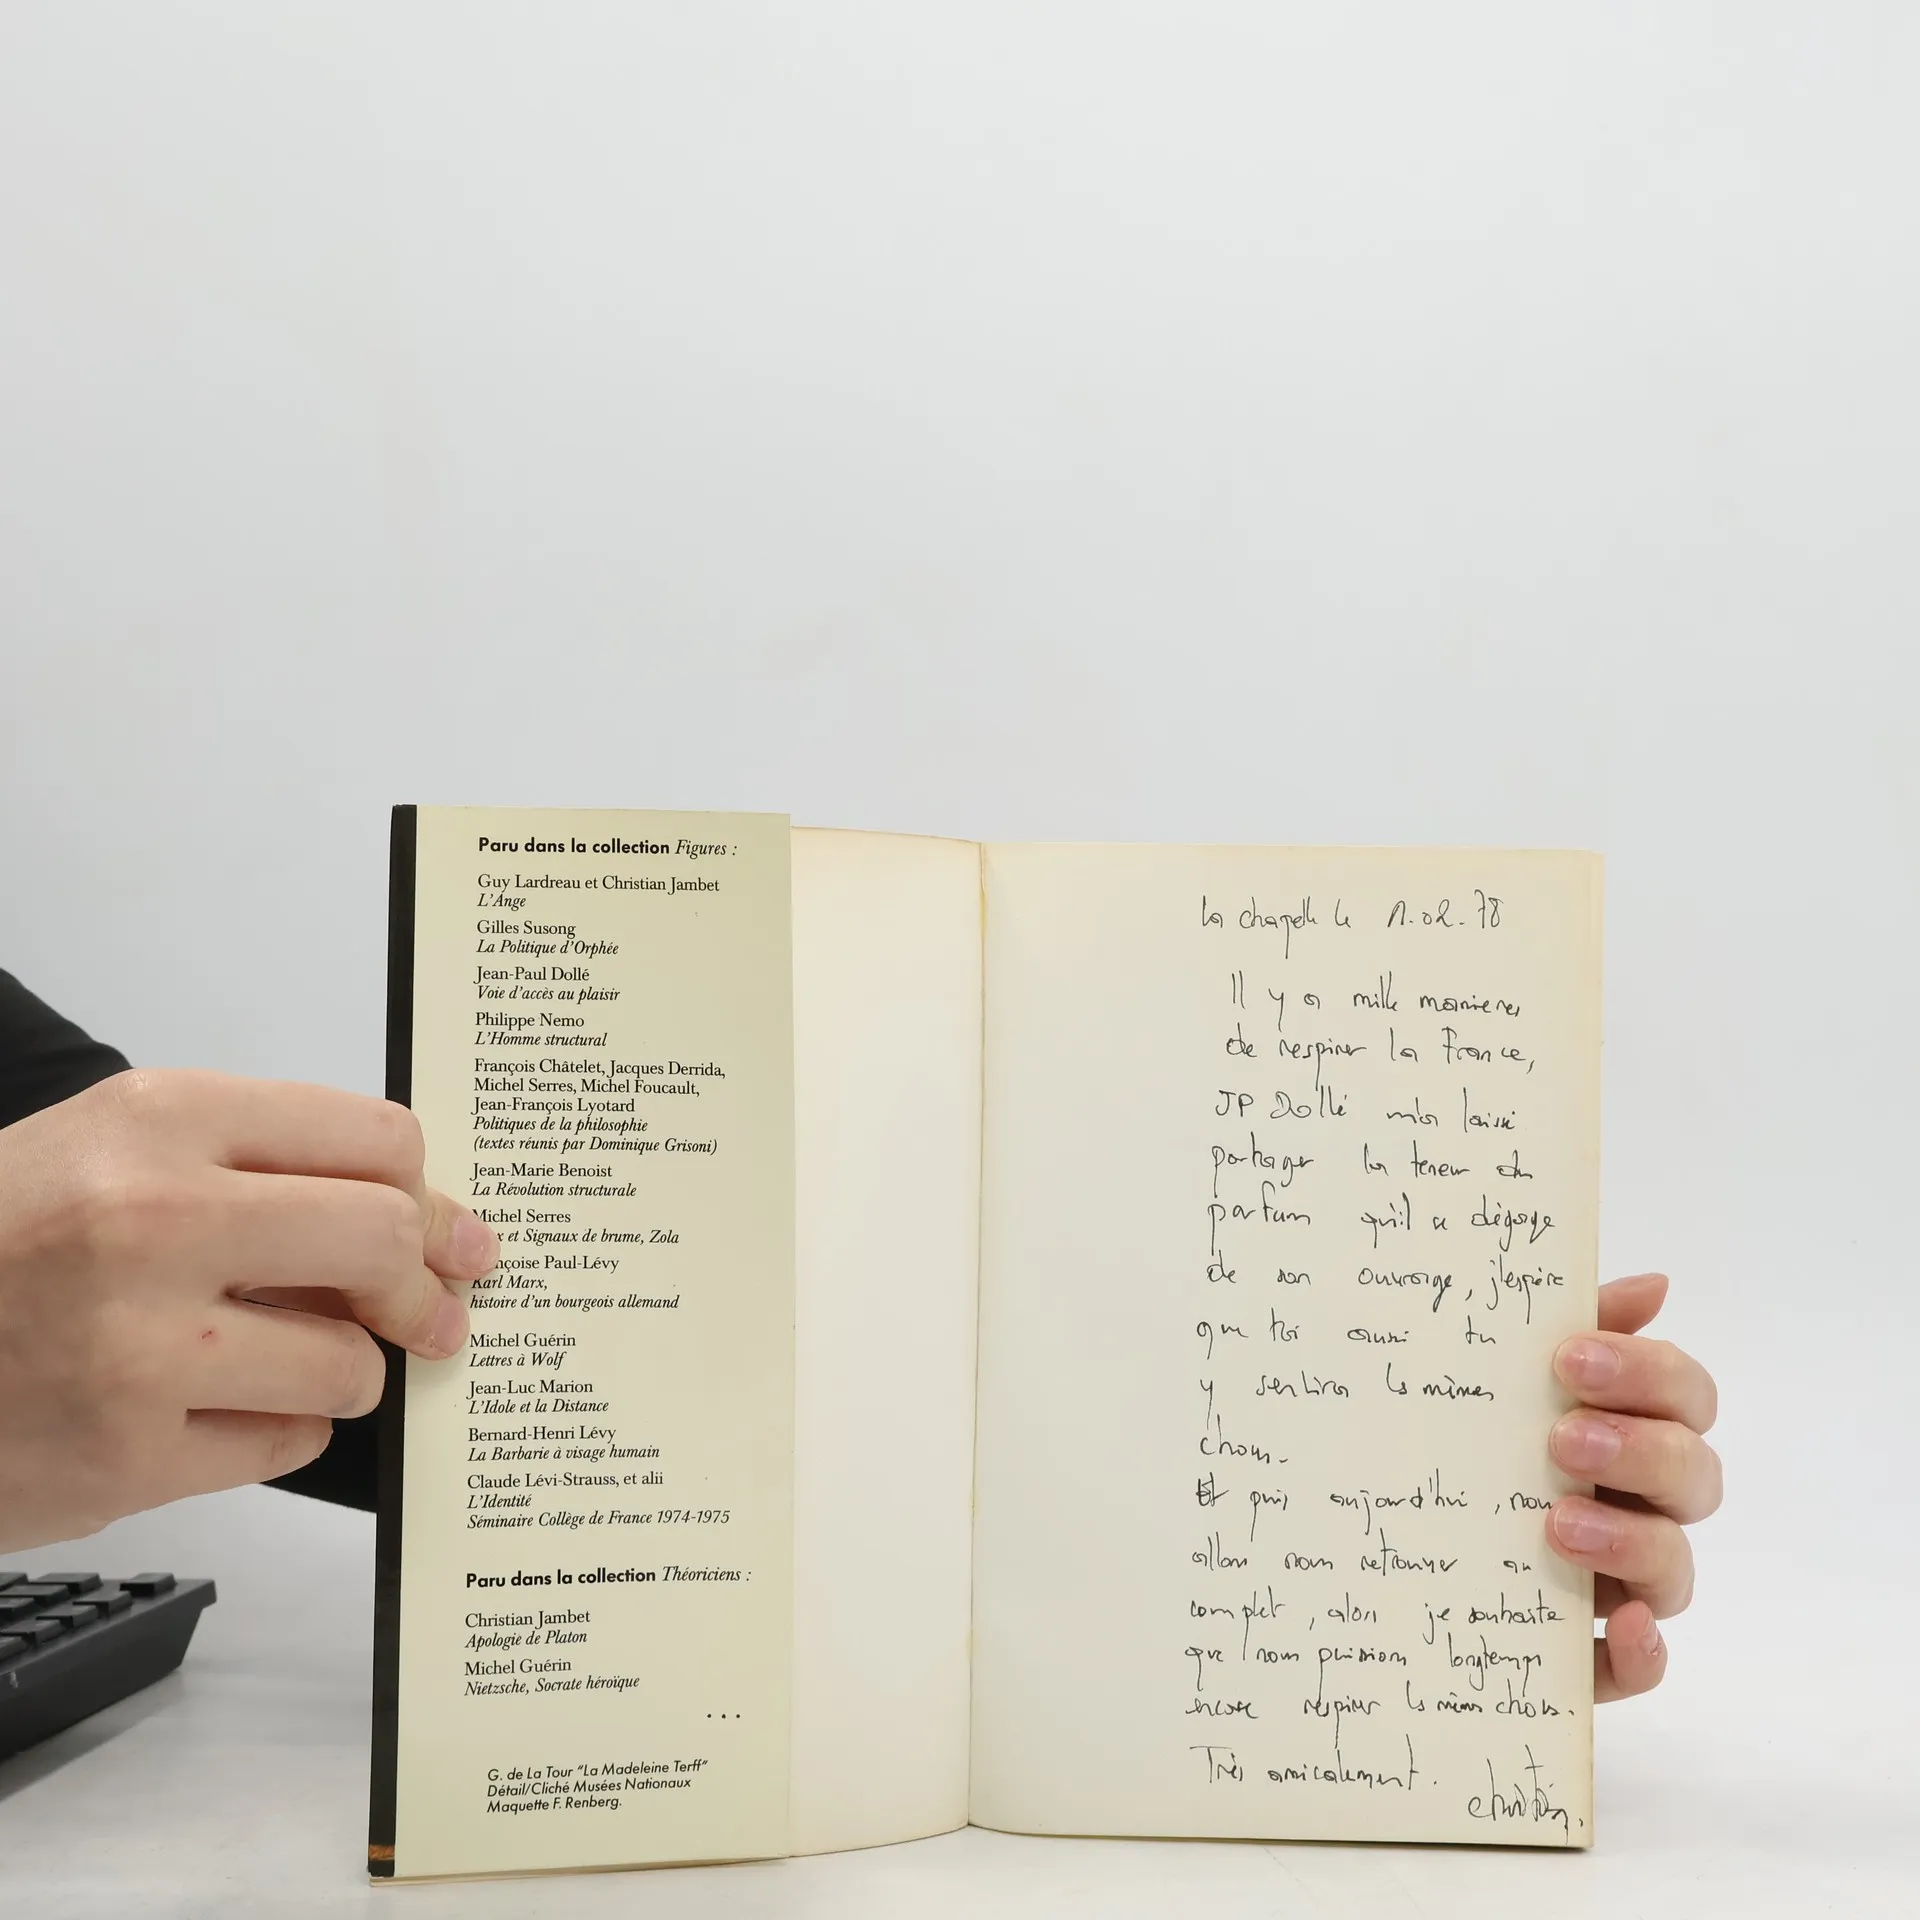 Paru dans la collection Figures :
Guy Lardreau et Christian Jambet
L'Ange
Gilles Susong
La Politique d'Orphée
Jean-Paul Dollé
Voie d'accès au plaisir
Philippe Nemo
L'Homme structural
François Châtelet, Jacques Derrida,
Michel Serres, Michel Foucault,
Jean-François Lyotard
Politiques de la philosophie
(textes réunis par Dominique Grisoni)
Jean-Marie Benoist
La Révolution structurale
Michel Serres
et Signaux de brume, Zola
Paul-Lévy
Karl Marx,
histoire d'un bourgeois allemand
Michel Guérin
Lettres à Wolf
Jean-Luc Marion
L'Idole et la Distance
Bernard-Henri Lévy
La Barbarie à visage humain
Claude Lévi-Strauss, et alii
L'Identité
Séminaire Collège de France 1974-1975
Paru dans la collection Théoriciens :
Christian Jambet
Apologie de Platon
Michel Guérin
Nietzsche, Socrate héroïque
...
G. de La Tour "La Madeleine Terff"
Détail/Cliché Musées Nationaux
Maquette F. Renberg.
La chapelle le 1.02.78
Il y a mille manieres
de respirer la France,
JP Dollé m'a laissé
partager la teneur du
parfum qu'il a dégagé
de son ouvrage, j'espère
que toi aussi tu
y sentiras les mêmes
choses.
Et puis aujourd'hui, nous
allons nous retrouver au
complet, alors je souhaite
que nous puissions longtemps
encore respirer les mêmes choses.
Très amicalement.
Christian.